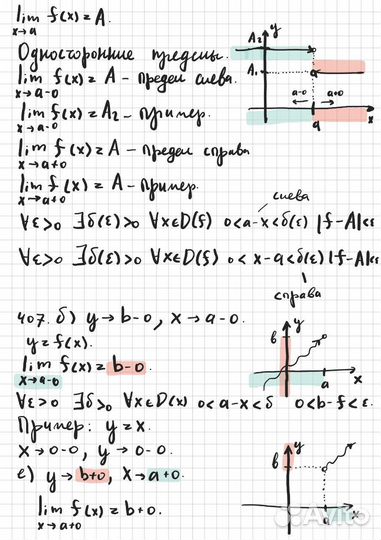 lim f(x) = A.
x→a
Односторонние пределы.
lim f(x) = A – предел слева.
x→a-0
lim f(x) = A₂ – пример.
x→a-0
lim f(x) = A – предел справа
x→a+0
lim f(x) = A – пример.
x→a+0
y
A₂
A₁
a-0 a+0
a
x
слева
∀ε>0 ∃δ(ε)>0 ∀x∈D(f) 0<a-x<δ(ε) |f-A|<ε
∀ε>0 ∃δ(ε)>0 ∀x∈D(f) 0<x-a<δ(ε) |f-A|<ε
справа
407. б) y→b-0, x→a-0.
y=f(x).
lim f(x) = b-0.
x→a-0
y
b
a
x
∀ε>0 ∃δ>0 ∀x∈D(x) 0<a-x<δ 0<b-f<ε.
Пример: y=x.
x→0-0, y→0-0.
е) y→b+0, x→a+0.
lim f(x) = b+0.
x→a+0
y
b
a
x
Avito